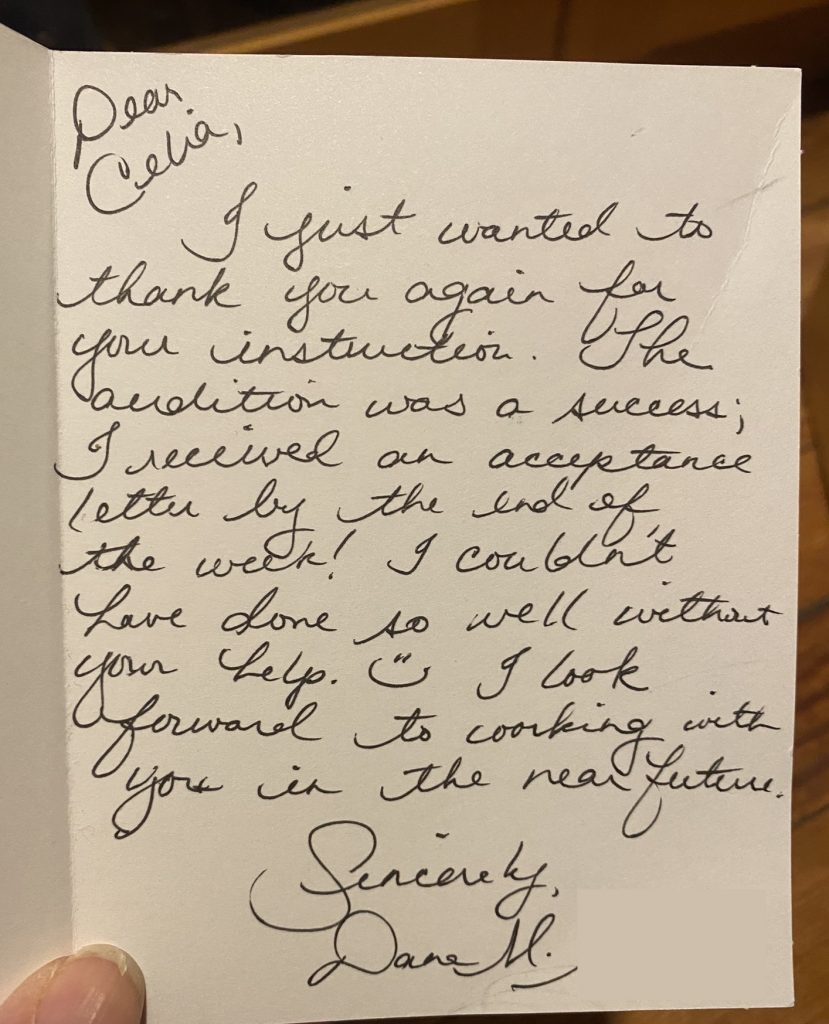 Dear
Celia,
I just wanted to
thank you again for
your instruction. The
audition was a success;
I received an acceptance
letter by the end of
the week! I couldn't
have done so well without
your help. ü I look
forward to working with
you in the near future.
Sincerely,
Dane M.